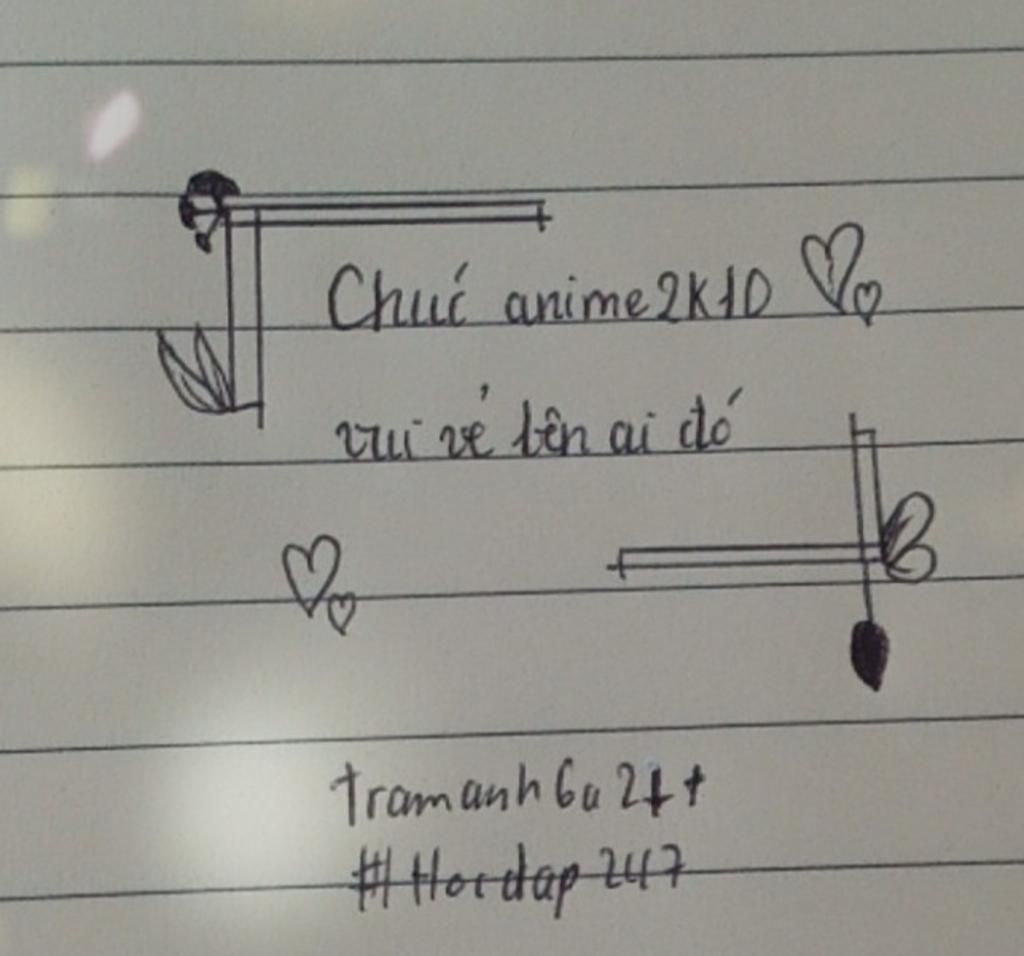 Chúc anime2K10
vui vẻ lên ai đó
tramanh6a2++
#Hoidap247